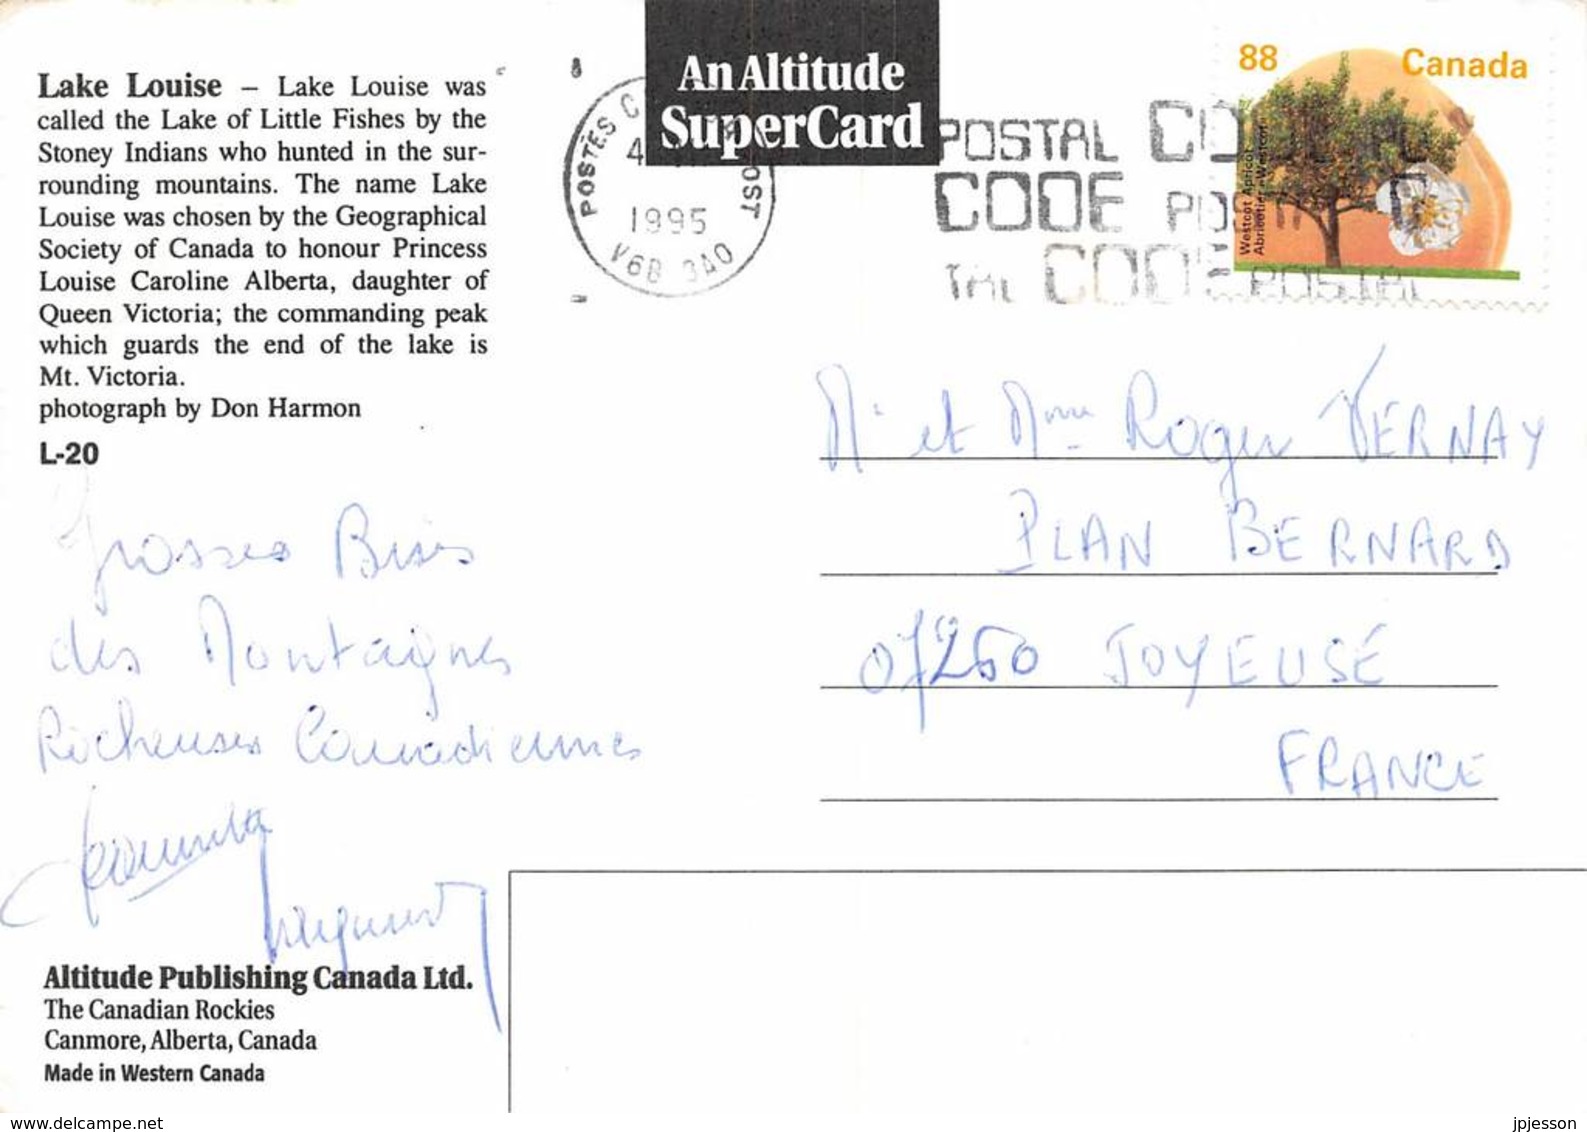 Lake Louise – Lake Louise was
called the Lake of Little Fishes by the
Stoney Indians who hunted in the sur-
rounding mountains. The name Lake
Louise was chosen by the Geographical
Society of Canada to honour Princess
Louise Caroline Alberta, daughter of
Queen Victoria; the commanding peak
which guards the end of the lake is
Mt. Victoria.
photograph by Don Harmon
L-20
An Altitude
SuperCard
POSTES
1995
V6B 3A0
POSTAL
CODE
88 Canada
Westcot Apricot
Abricotier Westcot
Grosses Bises
des Montagnes
Rocheuses Canadiennes
Mr et Mme Roger VERNAY
PLAN BERNARD
07260 JOYEUSE
FRANCE
Altitude Publishing Canada Ltd.
The Canadian Rockies
Canmore, Alberta, Canada
Made in Western Canada
www.delcampe.net
jpjesson